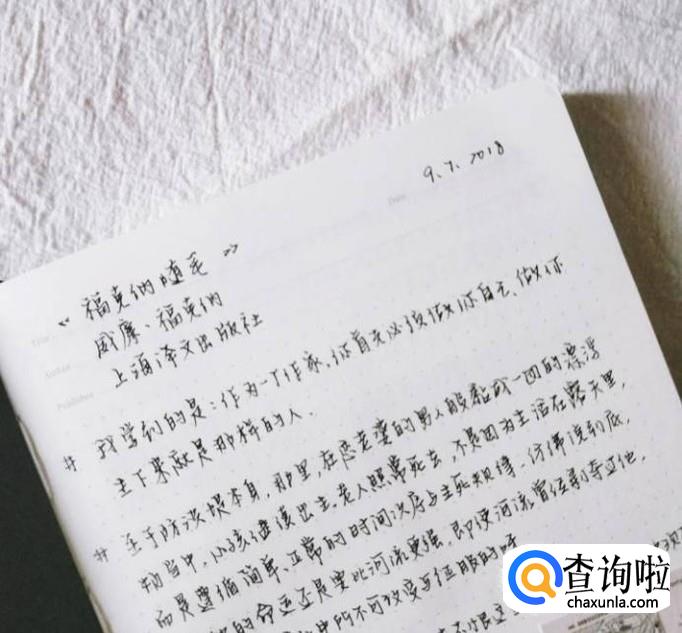 9.7.2018
Date
Title
《福克纳随笔》
Author
威廉·福克纳
Publisher
上海译文出版社
# 我学到的是:作为一个作家,你首先必须做你自己,做你
生下来就是那样的人.
# 至于防洪堤本身,那里,在
的男人
一团的漂浮
物当中,小孩遗续出生,老人照常死去,不是因为生活在露天里,
而是遵循简单、正常的时间次序与生死规律,仿佛说到底,
的命运还是要比河流更强,即使河流曾经
中所不可改变与征服的
查询啦
chaxunla.com